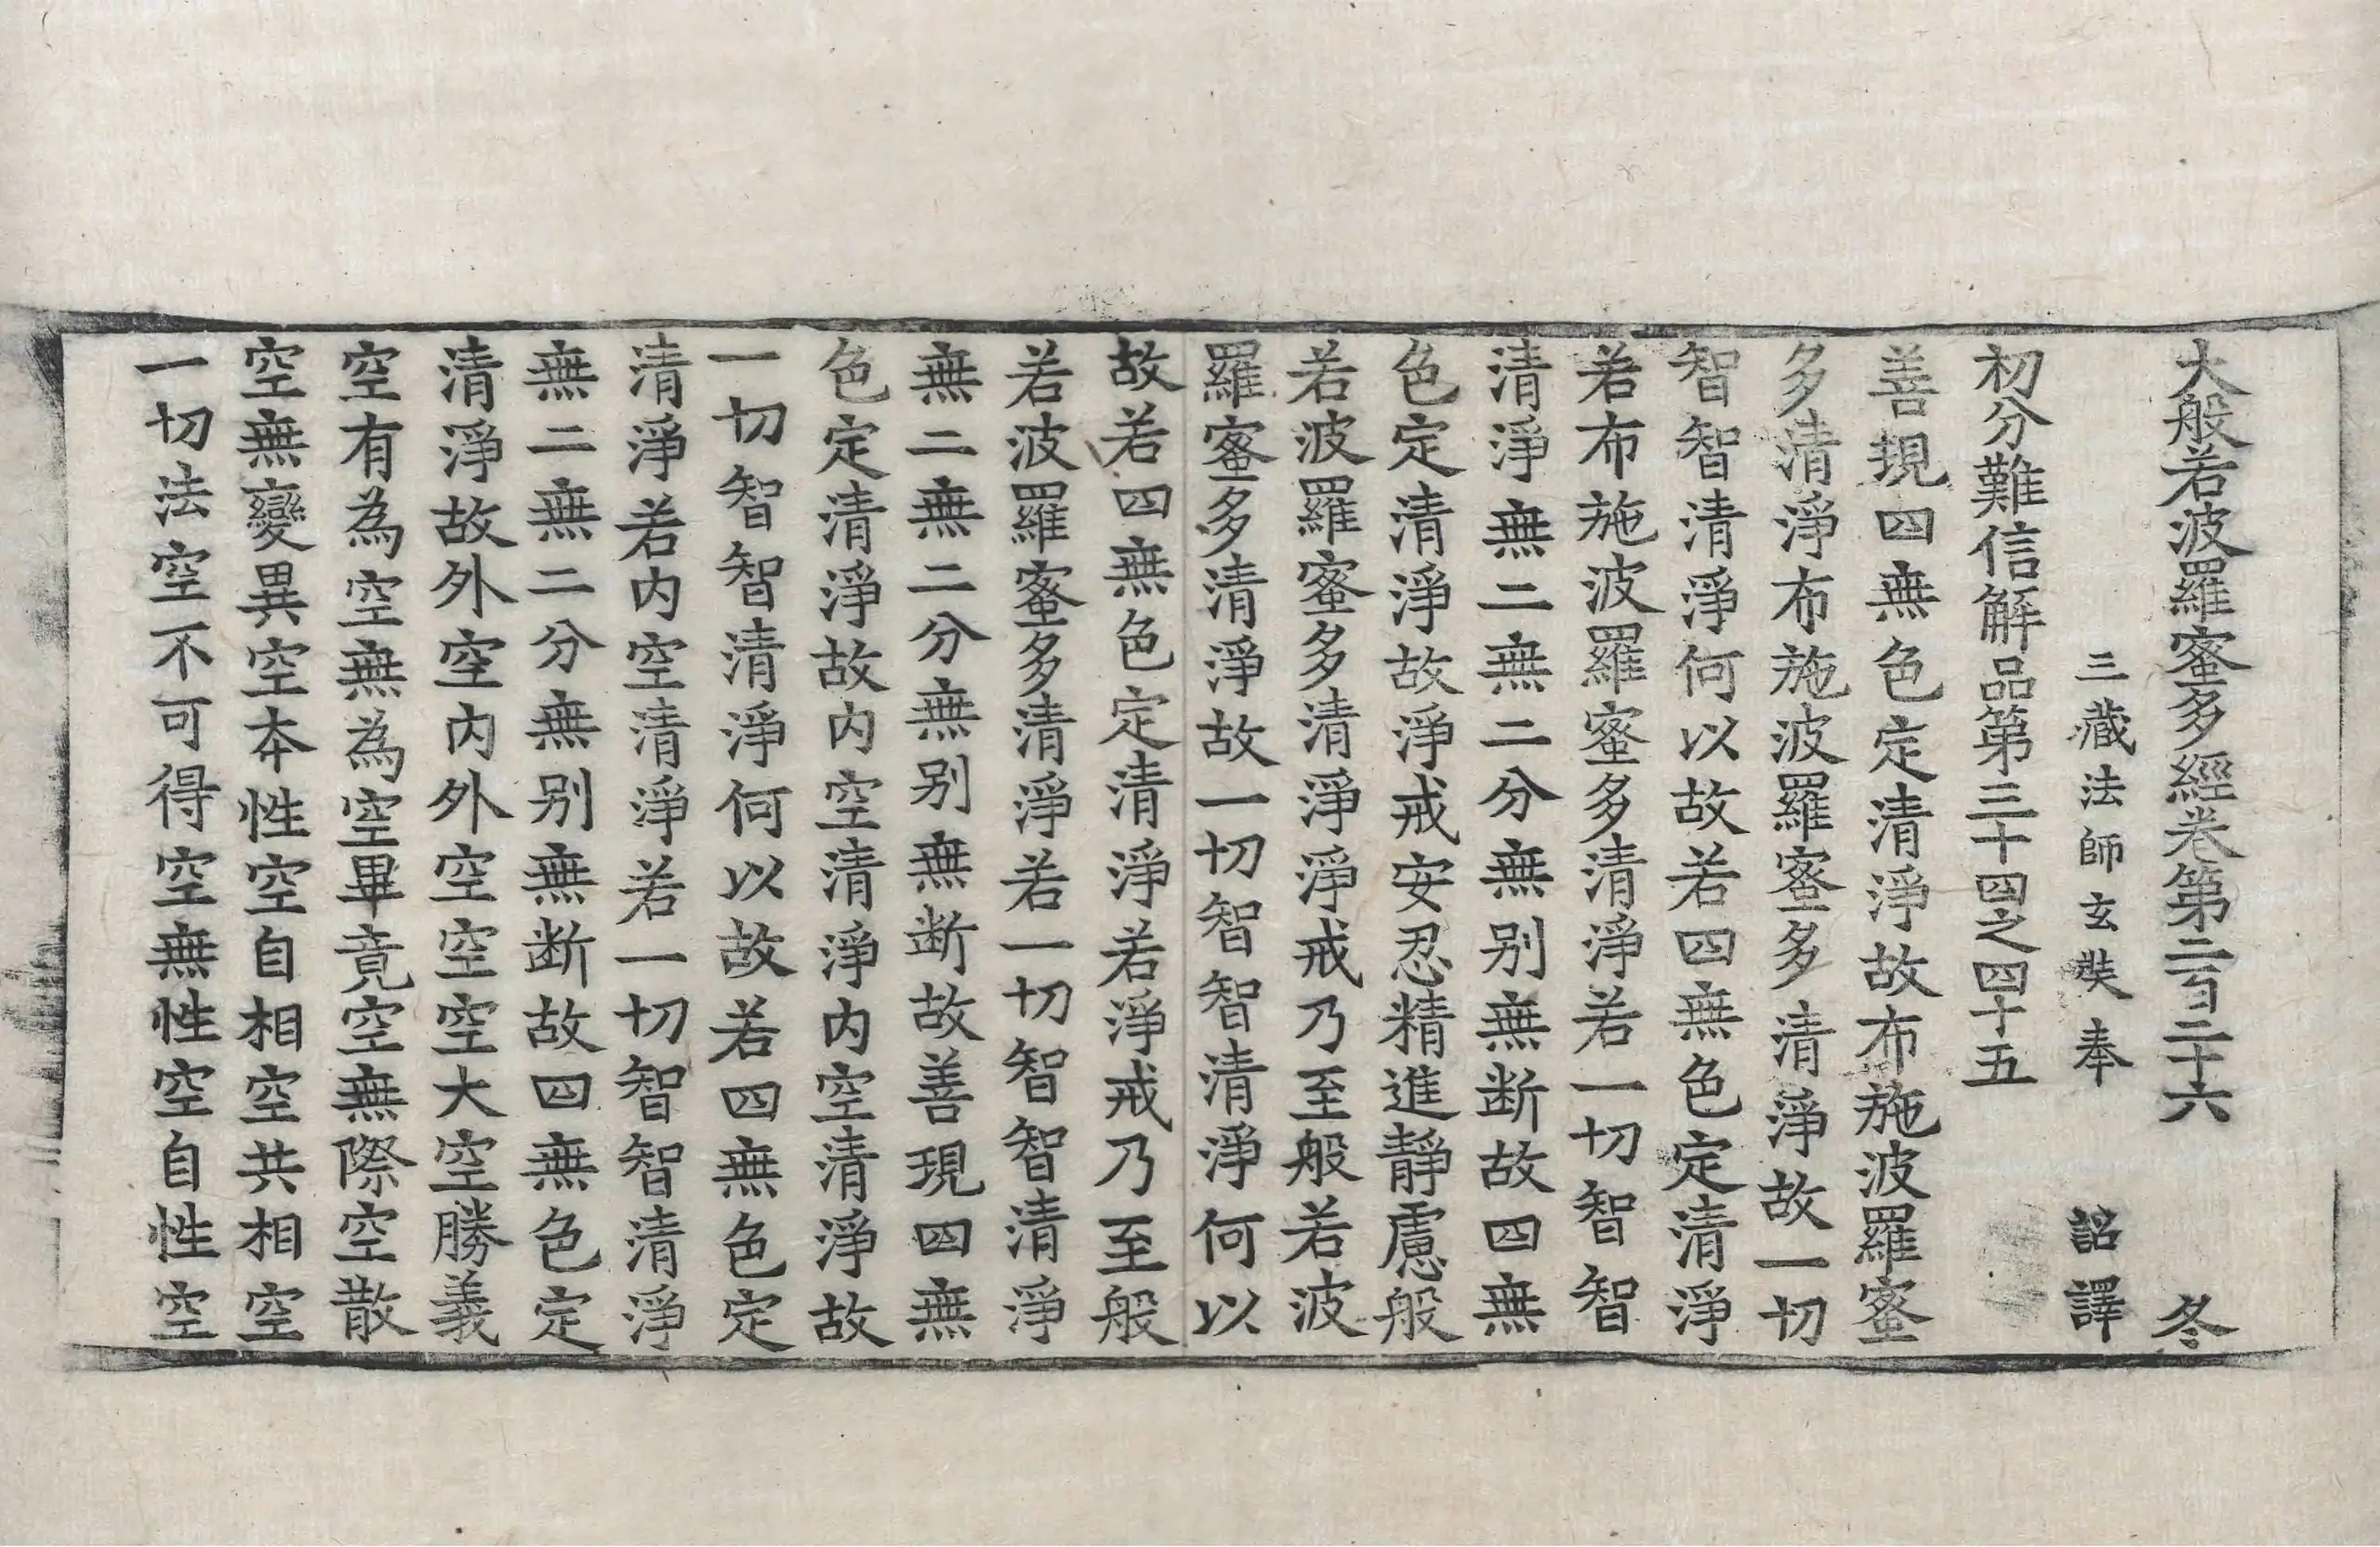 大般若波羅蜜多經卷第二百二十六 冬
三藏法師玄奘奉 詔譯
初分難信解品第三十四之四十五
善現四無色定清淨故布施波羅蜜
多清淨布施波羅蜜多清淨故一切
智智清淨何以故若四無色定清淨
若布施波羅蜜多清淨若一切智智
清淨無二無二分無別無断故四無
色定清淨故淨戒安忍精進靜慮般
若波羅蜜多清淨淨戒乃至般若波
羅蜜多清淨故一切智智清淨何以
故若四無色定清淨若淨戒乃至般
若波羅蜜多清淨若一切智智清淨
無二無二分無別無断故善現四無
色定清淨故內空清淨內空清淨故
一切智智清淨何以故若四無色定
清淨若內空清淨若一切智智清淨
無二無二分無別無断故四無色定
清淨故外空內外空空空大空勝義
空有為空無為空畢竟空無際空散
空無變異空本性空自相空共相空
一切法空不可得空無性空自性空